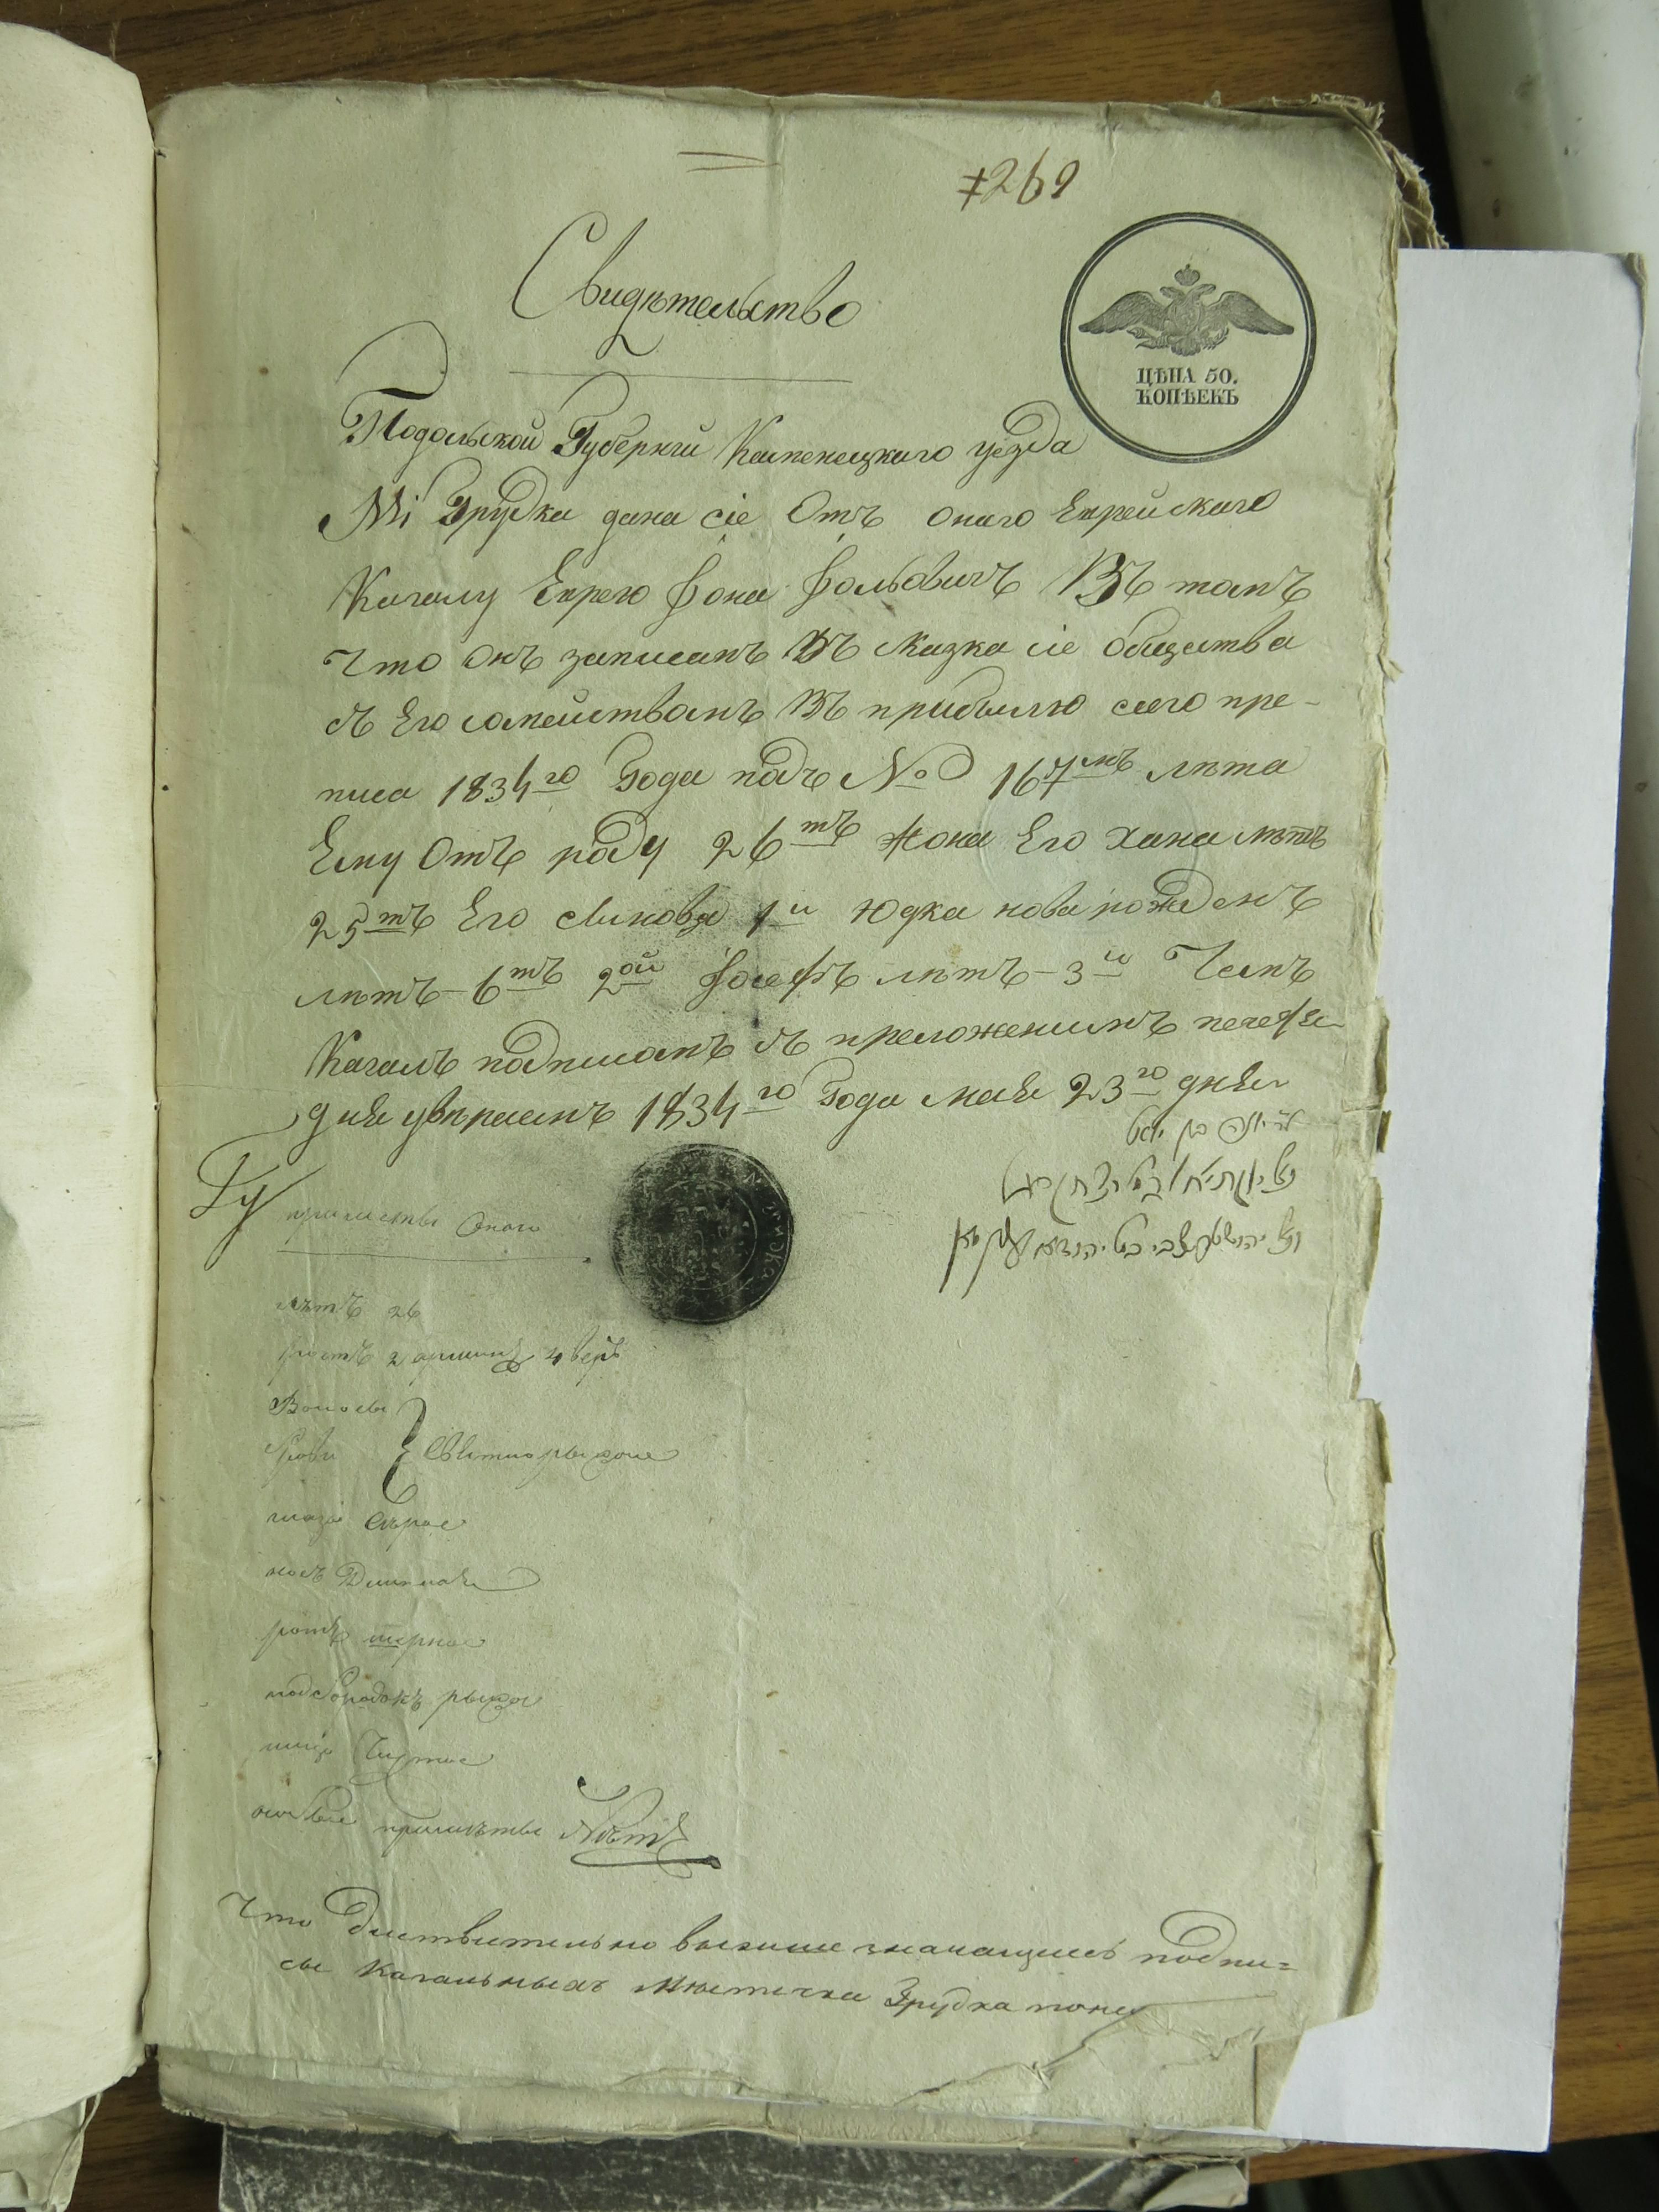 7269
Свидѣтельство
ЦѢНА 50.
КОПѢЕКЪ
Подольской Губерніи Каменецкаго уезда
Мі Грудка дана сіе Отъ онаго Еврейскаго
Кагалу Еврею Іона Іольовичъ Въ томъ
что онъ записанъ Въ сказка сіе общества
съ Его сомействомъ Въ прибилю сего пре-
писа 1834го Года подъ № 167мъ лѣта
Ему Отъ роду 26тъ Жона Его Хана лѣтъ
25тъ Его синовя 1й Юдка новарожденъ
лѣтъ-6тъ 2ой Іосефъ лѣтъ-3й Чемъ
Кагалъ подписомъ съ преложенимъ печати
дня 1834го Года мая 23го дня
יונה בן יואל
Ту примѣты Онаго
лѣтъ 26
ростъ 2 аршина 4 верш
Волосы
брови Свѣтлорыжые
глаза Сѣрые
носъ
ротъ мѣрное
подбородокъ рыжой
лицо Чистое
особые примѣты Нѣтъ
Что Дѣствительно вышше значащиесь подпи=
сы Кагальныхъ Мѣстечка Грудка